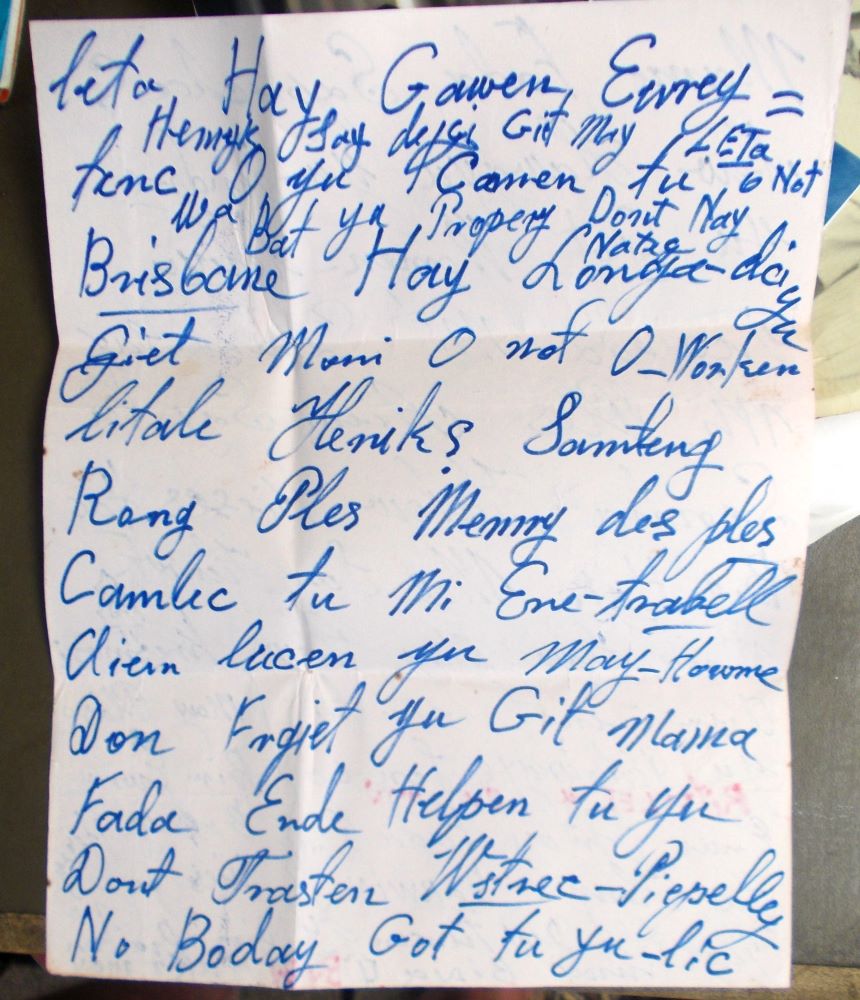 leta Hay Gawen, Evrey =
Henryk Say dejsi Git May LETa
tenc O yu Camen tu o Not
Wa Bat yu Propery Dont Nay
Brisbane Hay Longa-day yu
Giet Mani O not O-Worken
litale Heniks Samteng
Rong Ples Memry des ples
Cambec tu Mi Ene-trabell
diem lucen yu May-Howme
Don Frgiet yu Git Mama
Fada Ende Helpen tu yu
Dont Trasten Wstrec-Piepelley
No Boday Got tu yu-lic